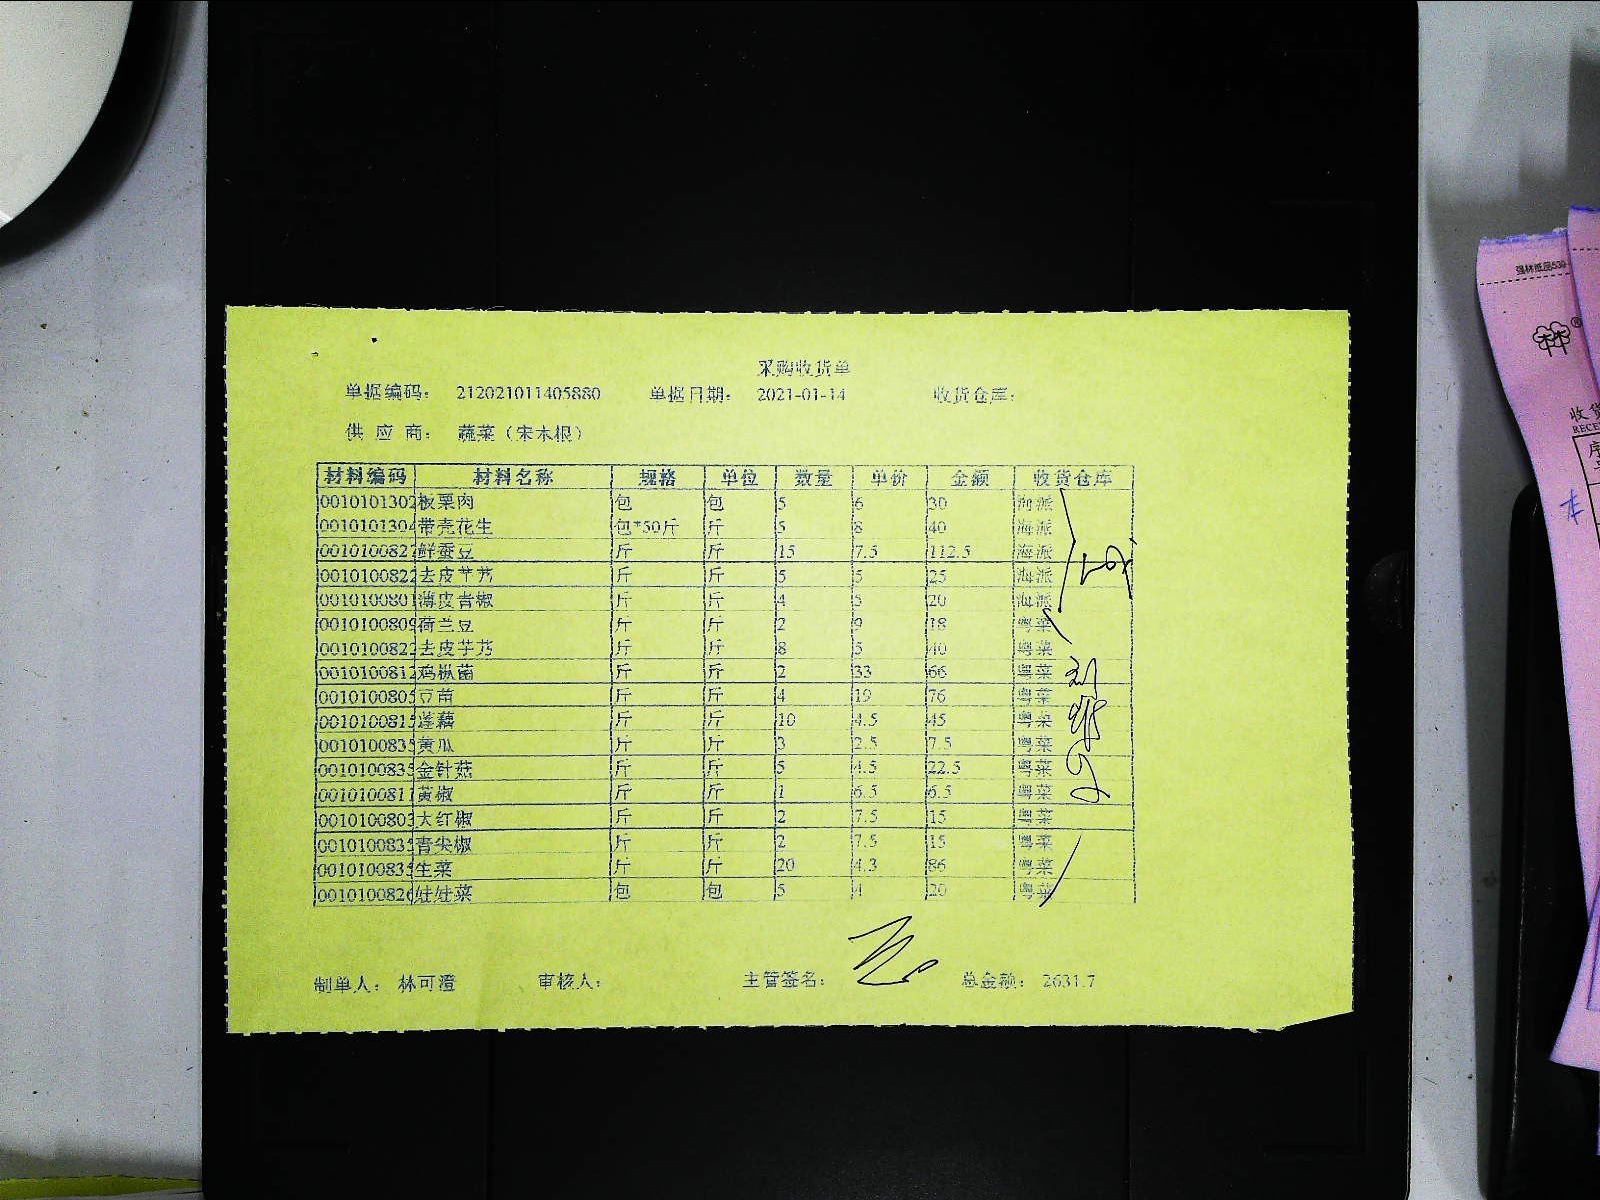 采购收货单
单据编码： 212021011405880 单据日期： 2021-01-14 收货仓库：
供 应 商： 蔬菜（宋本根）
材料编码 材料名称 规格 单位 数量 单价 金额 收货仓库
0010101302 板栗肉 包 包 5 6 30 海派
0010101304 带壳花生 包*50斤 斤 5 8 40 海派
0010100827 鲜蚕豆 斤 斤 15 7.5 112.5 海派
0010100822 去皮芋艿 斤 斤 5 5 25 海派
0010100801 薄皮青椒 斤 斤 4 5 20 海派
0010100809 荷兰豆 斤 斤 2 9 18 粤菜
0010100822 去皮芋艿 斤 斤 8 5 40 粤菜
0010100812 鸡枞菌 斤 斤 2 33 66 粤菜
0010100805 豆苗 斤 斤 4 19 76 粤菜
0010100815 莲藕 斤 斤 10 4.5 45 粤菜
0010100835 黄瓜 斤 斤 3 2.5 7.5 粤菜
0010100835 金针菇 斤 斤 5 4.5 22.5 粤菜
0010100811 黄椒 斤 斤 1 6.5 6.5 粤菜
0010100803 大红椒 斤 斤 2 7.5 15 粤菜
0010100835 青尖椒 斤 斤 2 7.5 15 粤菜
0010100835 生菜 斤 斤 20 4.3 86 粤菜
0010100826 娃娃菜 包 包 5 4 20 粤菜
制单人： 林可澄 审核人： 主管签名： 总金额： 2631.7
强林纸品530
收货
RECE
序